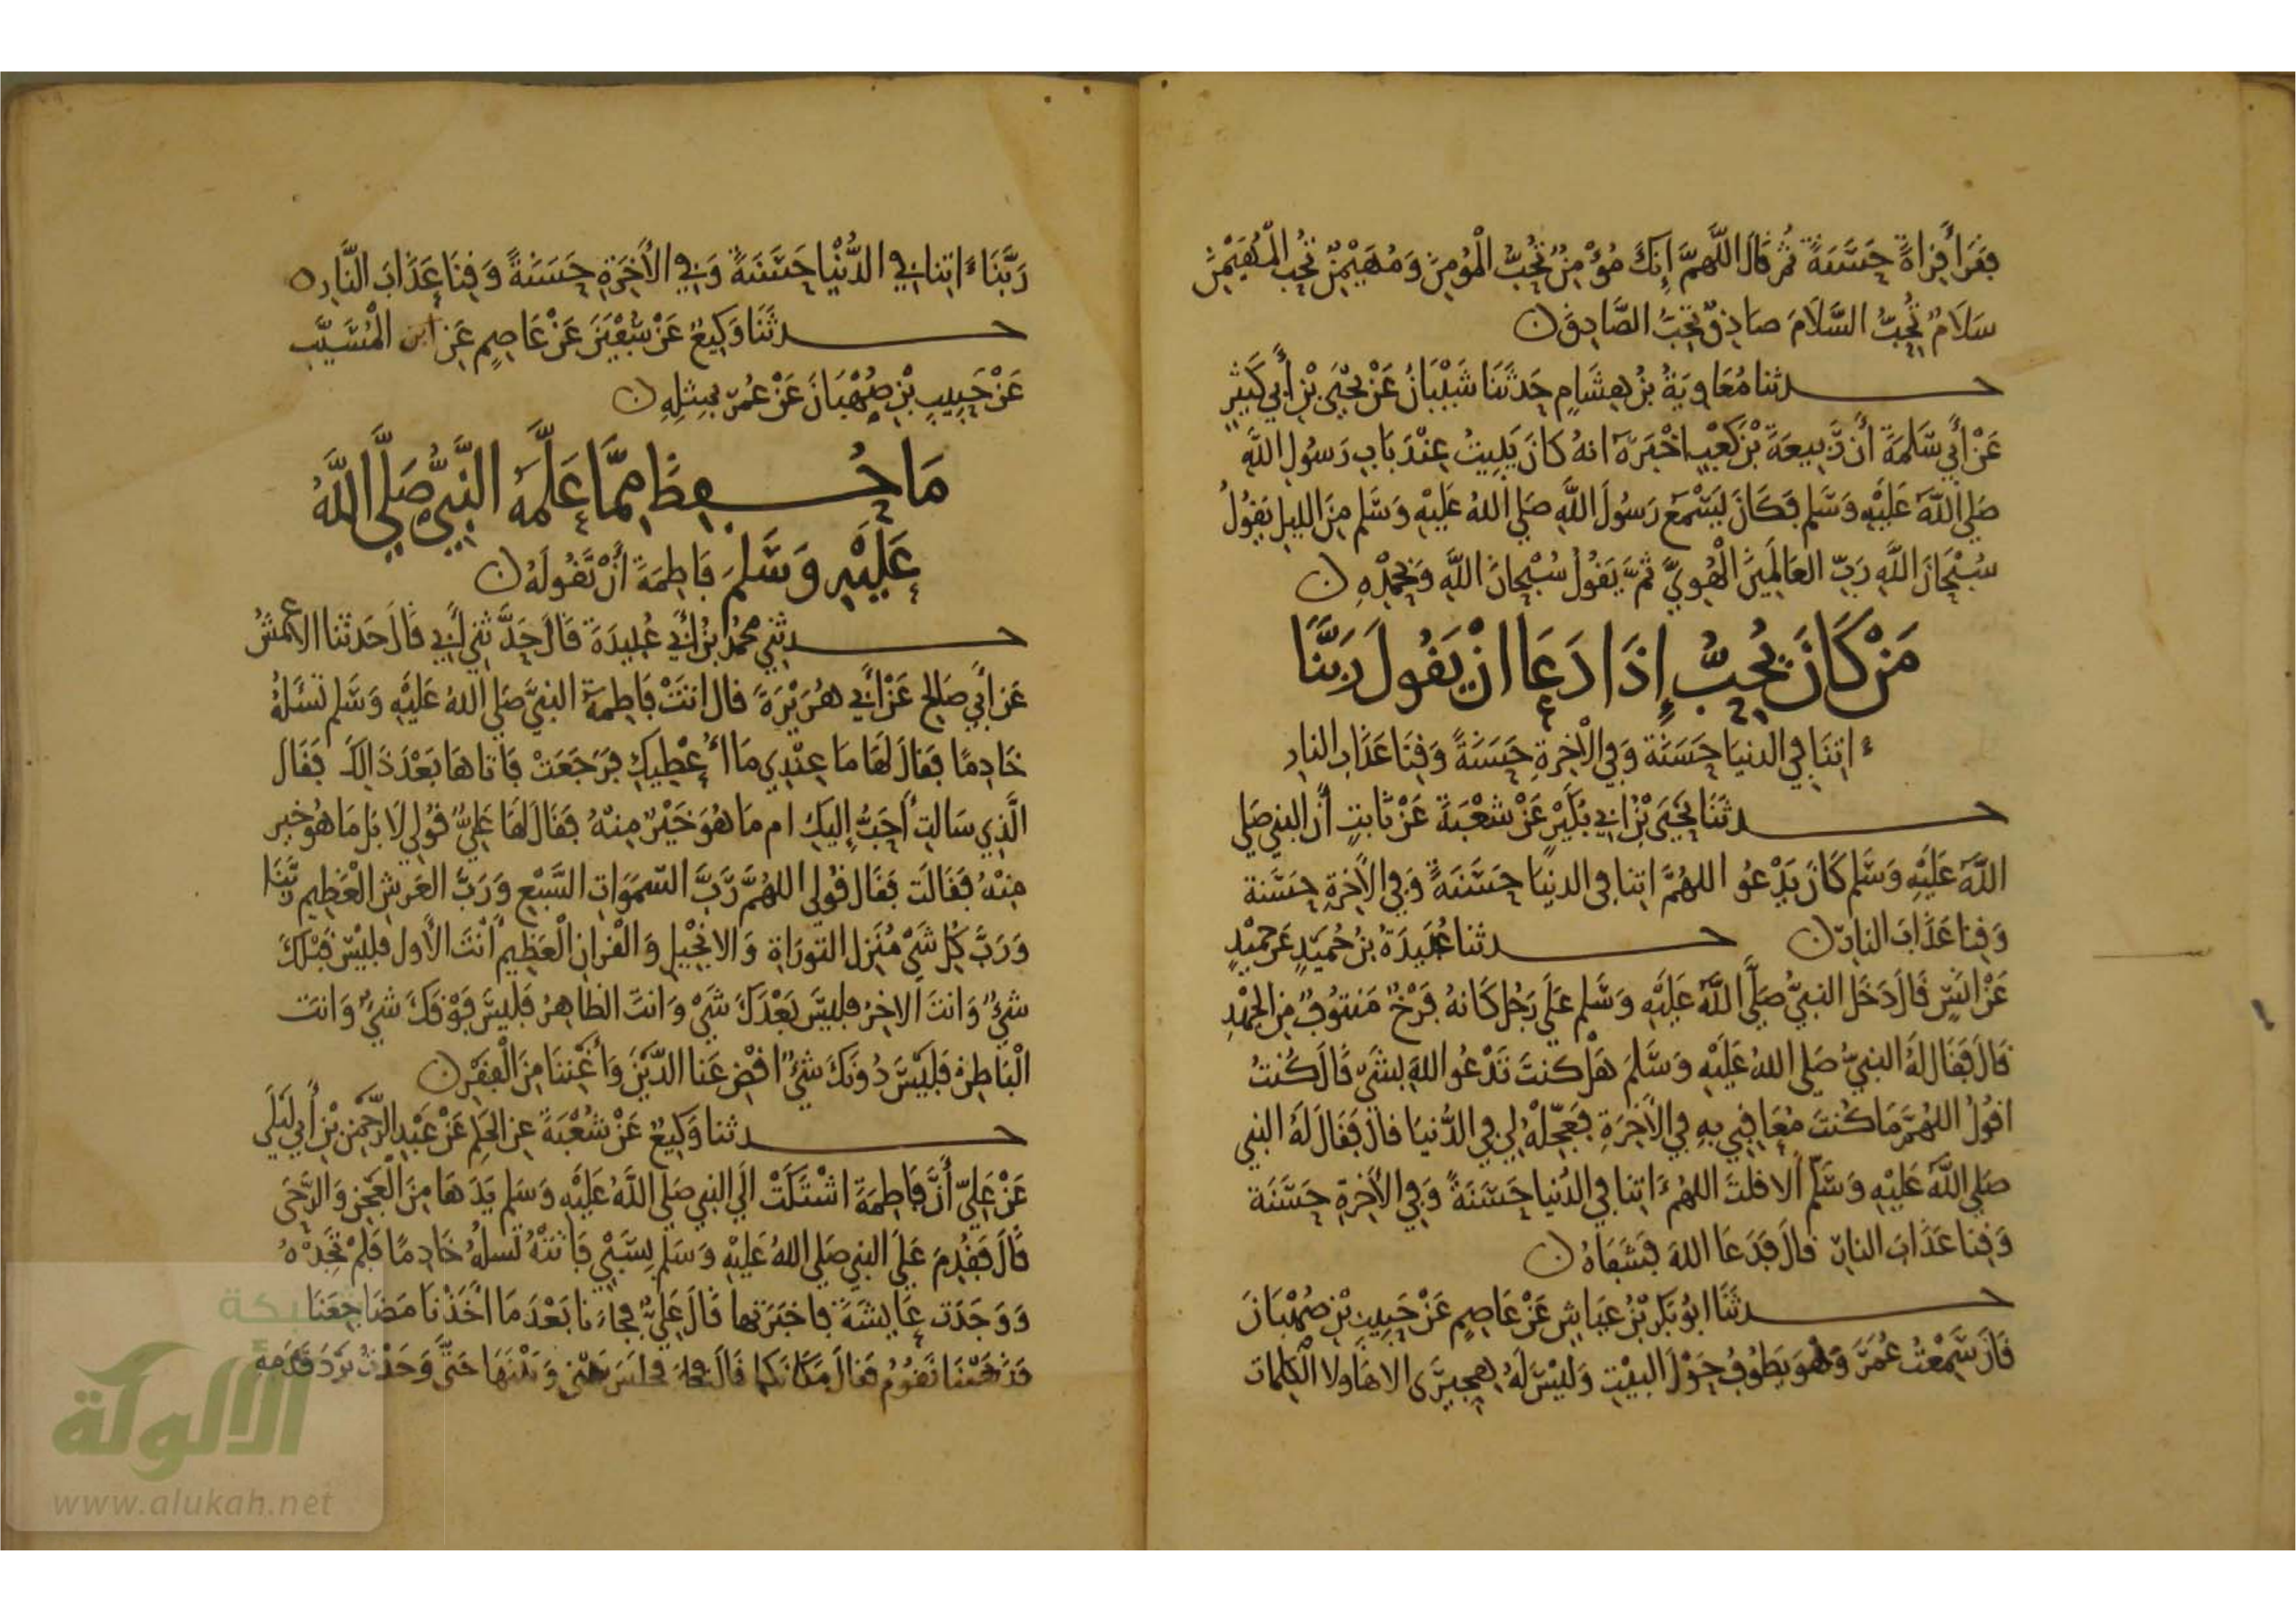 فقرأ قراةً حسنةً ثم قال اللهمّ إنك مؤمن تحبّ المؤمن ومهيمن تحب المهيمن
سلام تحبّ السلام صادق تحبّ الصادق
حدثنا معاوية بن هشام حدثنا شيبان عن يحيى بن أبي كثير
عن أبي سلمة أن ربيعة بن كعب اخبره انه كان يبيت عند باب رسول الله
صلى الله عليه وسلم فكان يسمع رسول الله صلى الله عليه وسلم من الليل يقول
سبحان الله رب العالمين الهويّ ثم يقول سبحان الله وبحمده
من كان يحبّ إذا دعا ان يقول ربنا
ءاتنا في الدنيا حسنة وفي الاخرة حسنة وقنا عذاب النار
حدثنا يحيى بن ابي بكير عن شعبة عن ثابت أن النبي صلى
الله عليه وسلم كان يدعو اللهمّ اتنا في الدنيا حسنةً وفي الأخرة حسنة
وقنا عذاب النار حدثنا عبيدة بن حميد عن حميد
عن انس قال دخل النبي صلى الله عليه وسلم على رجل كانه فرخ منتوف من الجهد
قال فقال له النبي صلى الله عليه وسلم هل كنت تدعو الله بشي قال كنت
اقول اللهمّ ما كنت معاقبي به في الأخرة فعجّله لي في الدّنيا قال فقال له النبي
صلى الله عليه وسلم ألا قلت اللهم ءاتنا في الدنيا حسنةً وفي الأخرة حسنة
وقنا عذاب النار قال فدعا الله فشفاه
حدثنا ابو بكر بن عياش عن عاصم عن حبيب بن صهبان
قال سمعت عمر وهو يطوف حول البيت وليس له هجيرى الا هاولا الكلمات
ربّنا ءاتنا في الدّنيا حسنةً وفي الأخرة حسنةً وقنا عذاب النّار
حدثنا وكيع عن سفين عن عاصم عن ابن المسيّب
عن حبيب بن صهبان عن عمر بمثله
ما حفظ مما علّمه النبيّ صلّى الله
عليه وسلم فاطمة أن تقوله
حدثني محمد بن أبي عبيدة قال حدّثني أبي قال حدثنا الاعمش
عن أبي صالح عن أبي هريرة قال اتت فاطمة النبيّ صلى الله عليه وسلم تسئله
خادمًا فقال لها ما عندي ما أعطيك فرجعت فاتاها بعد ذالك فقال
الّذي سالت أحبّ إليك ام ما هو خير منه فقال لها عليّ قولي لا بل ما هو خير
منه فقالت فقال قولي اللهمّ ربّ السّموات السّبع وربّ العرش العظيم ربّنا
وربّ كل شي منزل التوراة والانجيل والقران العظيم أنت الأول فليس قبلك
شي وانت الاخر فليس بعدك شي وانت الظاهر فليس فوقك شي وانت
الباطن فليس دونك شي اقض عنا الدّين وأغننا من الفقر
حدثنا وكيع عن شعبة عن الحكم عن عبد الرّحمن بن أبي ليلى
عن عليّ أنّ فاطمة اشتكت الى النبي صلى الله عليه وسلم يدها من العجن والرّحى
قال فقدم على النبي صلى الله عليه وسلم بسبي فاتته تسله خادمًا فلم تجده
ووجدت عايشة فاخبرتها قال عليّ فجاءنا بعد ما أخذنا مضاجعنا
فذهبنا نقوم فقال مكانكما قال فجاء فجلس بيني وبينها حتّى وجدت برد قدمه
شبكة
الألوكة
www.alukah.net